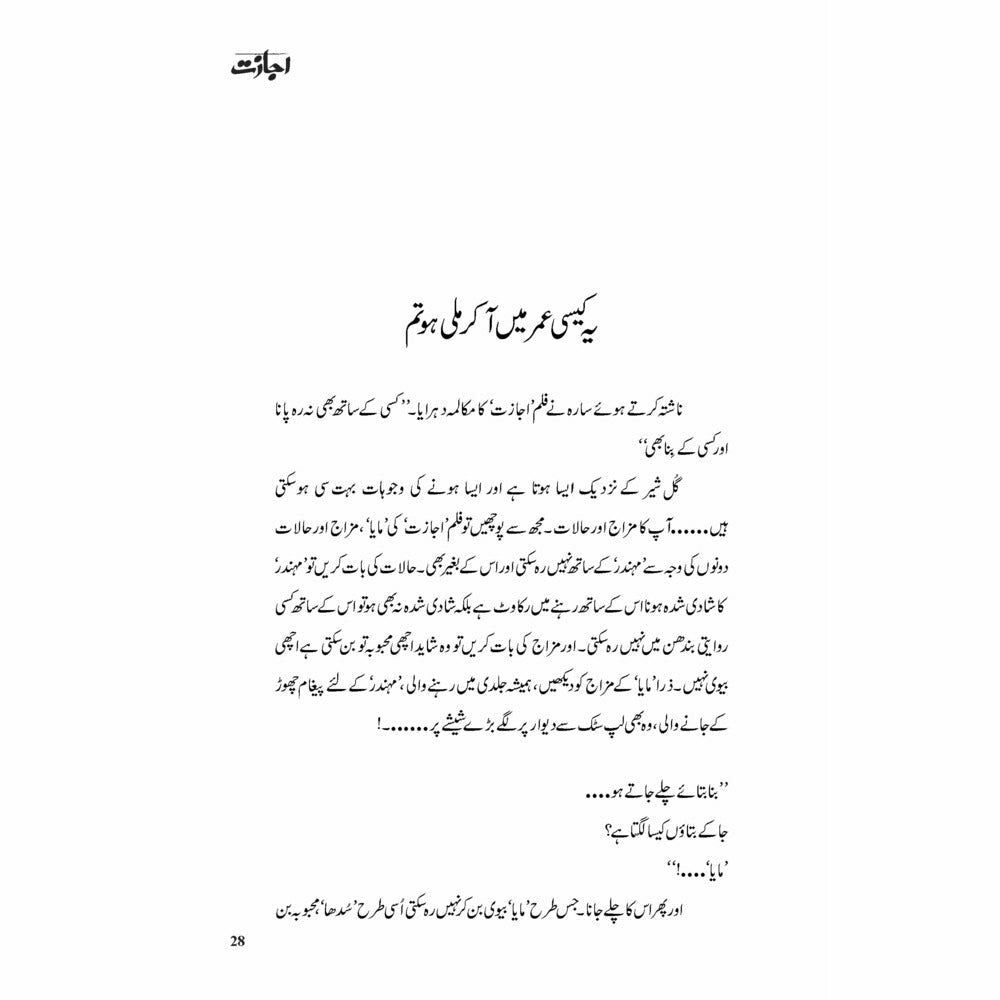 اجازت
یہ کیسی عمر میں آ کر ملی ہو تم
ناشتہ کرتے ہوئے سارہ نے فلم ’اجازت‘ کا مکالمہ دہرایا۔ ’’کسی کے ساتھ بھی نہ رہ پانا
اور کسی کے بِنا بھی‘‘
گُل شیر کے نزدیک ایسا ہوتا ہے اور ایسا ہونے کی وجوہات بہت سی ہو سکتی
ہیں......آپ کا مزاج اور حالات۔ مجھ سے پوچھیں تو فلم ’اجازت‘ کی ’مایا‘، مزاج اور حالات
دونوں کی وجہ سے ’مہندر‘ کے ساتھ نہیں رہ سکتی اور اس کے بغیر بھی۔ حالات کی بات کریں تو ’مہندر‘
کا شادی شدہ ہونا اس کے ساتھ رہنے میں رکاوٹ ہے بلکہ شادی شدہ نہ بھی ہو تو اس کے ساتھ کسی
روایتی بندھن میں نہیں رہ سکتی۔ اور مزاج کی بات کریں تو وہ شاید اچھی محبوبہ تو بن سکتی ہے اچھی
بیوی نہیں۔ ذرا ’مایا‘ کے مزاج کو دیکھیں، ہمیشہ جلدی میں رہنے والی، ’مہندر‘ کے لئے پیغام چھوڑ
کے جانے والی، وہ بھی لپ سٹک سے دیوار پر لگے بڑے شیشے پر......۔!
’’بنا بتائے چلے جاتے ہو....
جا کے بتاؤں کیسا لگتا ہے؟
’مایا‘....!‘‘
اور پھر اس کا چلے جانا۔ جس طرح ’مایا‘ بیوی بن کر نہیں رہ سکتی اُسی طرح ’سُدھا‘ محبوبہ بن
28